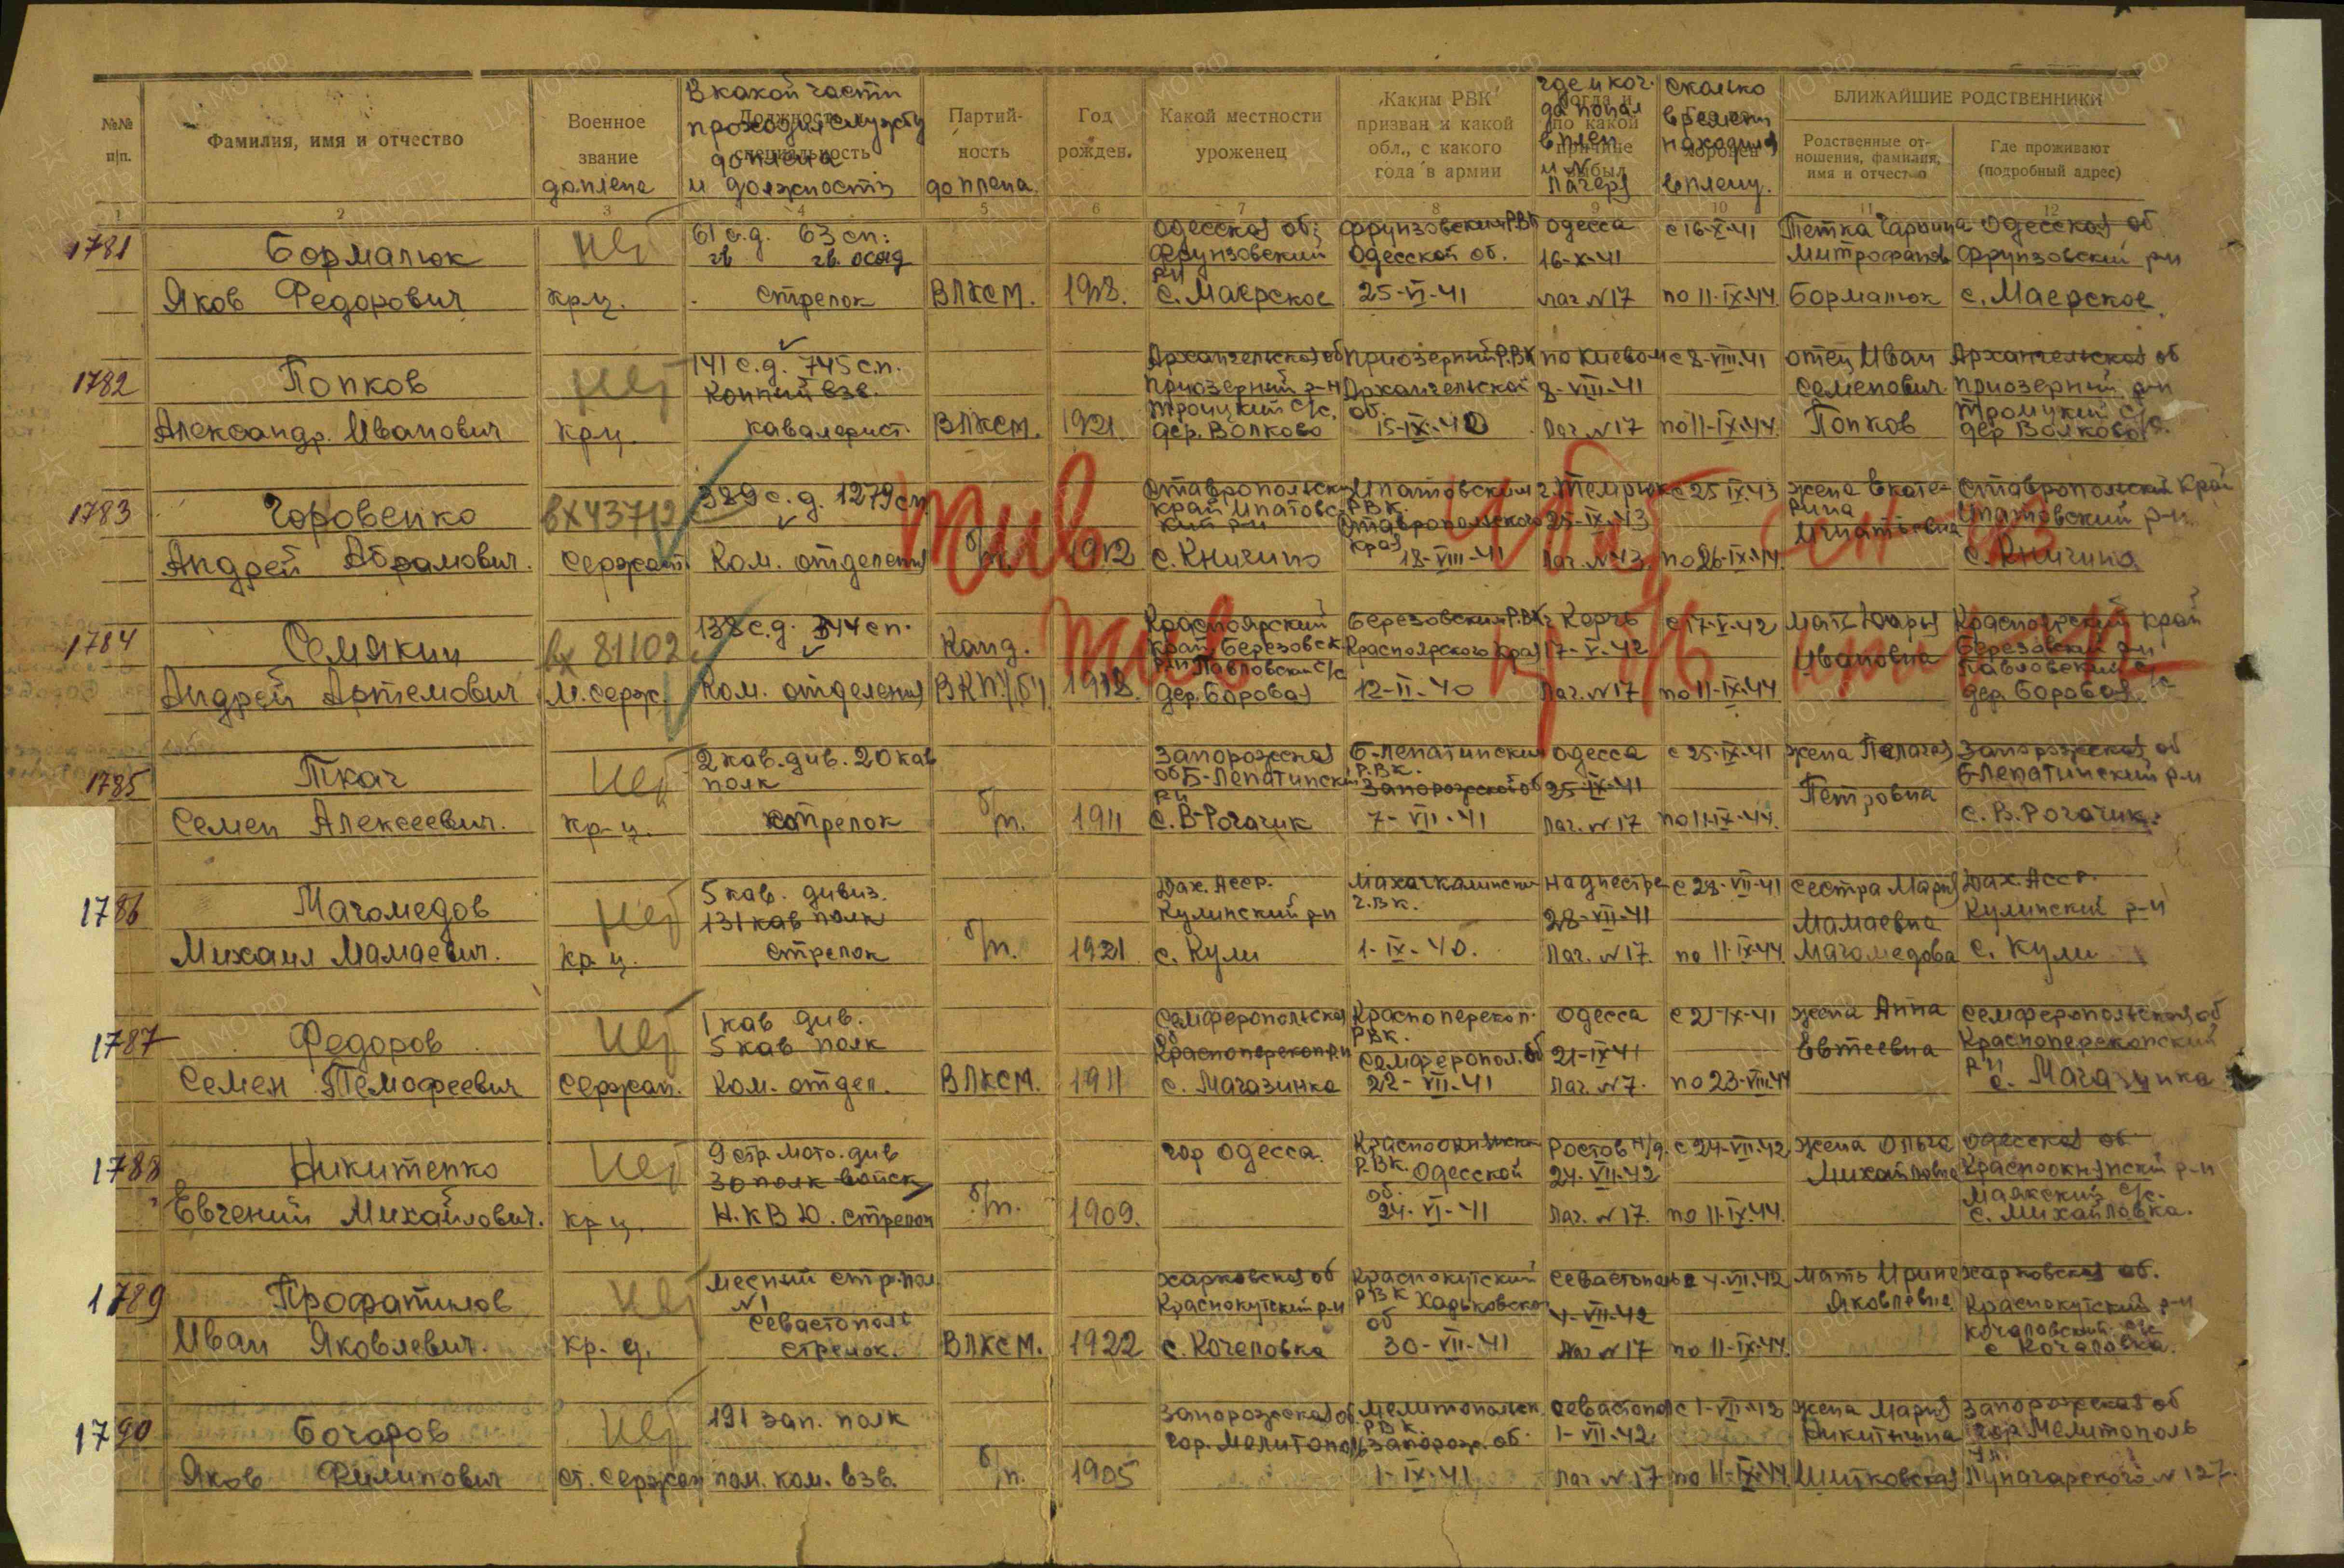 №№ п/п.
Фамилия, имя и отчество
Военное звание
до плена
В какой части проходил службу до плена и должность
Должность и специальность
Партийность
до плена
Год рожден.
Какой местности уроженец
Каким РВК призван и какой обл., с какого года в армии
где и когда попал в плен и № лагеря
Когда и по какой причине выбыл
сколько времени находился в плену.
БЛИЖАЙШИЕ РОДСТВЕННИКИ
Родственные отношения, фамилия, имя и отчество
Где проживают (подробный адрес)
1 2 3 4 5 6 7 8 9 10 11 12
1781
Борматюк
Яков Федорович
нет
кр-ц.
61 с.д. 63 сп.
стрелок
ВЛКСМ.
Одесская об.
Фрунзовский р-н
с. Маерское
Фрунзовский РВК
Одесской об.
25-VI-41
Одесса
16-X-41
лаг №17
с 16-X-41
по 11-IX-44.
Тетка
Митрофанов
Борматюк
Одесская об
Фрунзовский р-н
с. Маерское
1782
Попков
Александр. Иванович
нет
кр-ц.
141 с.д. 745 с.п.
Конный взв.
кавалерист.
ВЛКСМ.
1921.
Архангельская об
Приозерный р-н
Троицкий с/с.
дер. Волково
Приозерный РВК
Архангельской об.
15-IX-40
8-VIII-41
лаг №17
с 8-VIII-41
по 11-IX-44.
отец Иван
Семенович
Попков
Архангельская об
Приозерный р-н
Троицкий с/с.
дер Волково
1783
Горовенко
Андрей Абрамович.
вх 43712
Сержант
389 с.д. 1279 сп
Ком. отделения
б/п.
1912
Ставропольский край Ипатовский р-н
с. Кничино
Ипатовским РВК.
Ставропольского края
18-VIII-41
г. Темрюк
25-IX-43
лаг. №13.
с 25 IX-43
по 26-IX-44.
жена Екатерина
Игнатьевна
Ставропольский край
Ипатовский р-н
с. Кничино
жив
1784
Семякин
Андрей Артемович
вх 81102
М. серж.
138 с.д. 344 сп.
Ком. отделения
Канд.
ВКП/б/
1918.
Красноярский край Березовск р-н Павловский с/с
дер. Боровая
Березовским РВК
Красноярского края
12-II-40
г. Керчь
17-V-42
лаг. №17
с 17-V-42
по 11-IX-44
мать Дарья
Ивановна
Красноярский край
Березовский р-н
Павловский с/с
дер. Боровая.
жив
1785
Ткач
Семен Алексеевич.
нет
кр-ц.
2 кав. див. 20 кав
полк
стрелок
б/п.
1911
Запорожская об Б-Лепатинский р-н
с. В-Рогачик
Б-Лепатински РВК.
Запорожской об
7-VII-41
Одесса
25-IX-41
лаг. №17
с 25-IX-41
по 11-IX-44.
жена Пелагея
Петровна
Запорожская об
Б-Лепатинский р-н
с. В. Рогачик.
1786
Магомедов
Михаил Мамаевич.
нет
кр-ц.
5 кав. дивиз.
131 кав полк
стрелок
б/п.
1921
Даг. Асср.
Кулинский р-н
с. Кули
Махачкалински
г.вк.
1-IX-40.
на Днестре
28-VII-41
лаг. №17.
с 28-VII-41
по 11-IX-44.
сестра Мария
Мамаевна
Магомедова
Даг. Асср.
Кулинский р-н
с. Кули
1787
Федоров
Семен Темофеевич
нет
Сержан.
1 кав див.
5 кав полк
Ком. отдел.
ВЛКСМ.
1911
Семферопольская об
Красноперекоп р-н
с. Магазинка
Красноперекоп. РВК.
Семферопол. об
22-VII-41
Одесса
21-IX-41
лаг. №7.
с 21-IX-41
по 23-VIII-44
жена Анна
Евтеевна
Семферопольская об
Красноперекопский р-н
с. Магазинка
1788
Никитенко
Евгений Михайлович.
нет
кр-ц.
9 стр. мото. див
30 полк войск
Н.К.В.Д. стрелок
б/п.
1909.
гор Одесса.
Красноокнянски РВК. Одесской об.
24-VI-41
Ростов н/д.
24-VII-42
лаг. №17.
с 24-VII-42
по 11-IX-44.
жена Ольга
Михайловна
Одесская об
Красноокнянский р-н
Маякский с/с.
с. Михайловка.
1789
Профатилов
Иван Яковлевич.
нет
кр-ц.
месный стр. пол
№1
Севастополь
стрелок.
ВЛКСМ.
1922
Харковская об
Краснокутский р-н
с. Качеловка
Краснокутский РВК Харьковско об
30-VII-41
Севастополь
4-VII-42
лаг №17
с 4-VII-42
по 11-IX-44.
мать Ирина
Яковлевна
Харковская об.
Краснокутский р-н
1790
Бочаров
Яков Филипович
нет
ст. сержан
191 зап. полк
пом. ком. взв.
б/п.
1905
Запорожская об.
гор. Мелитополь
Мелитопольск. РВК.
Запорож. об.
1-IX-41
Севастополь
1-VII-42
лаг №17
с 1-VII-42
по 11-IX-44
жена Мария
Никитична
Запорожская об
гор Мелитополь
ул. Луначарского №127.
ЦАМО.РФ
ПАМЯТЬ НАРОДА